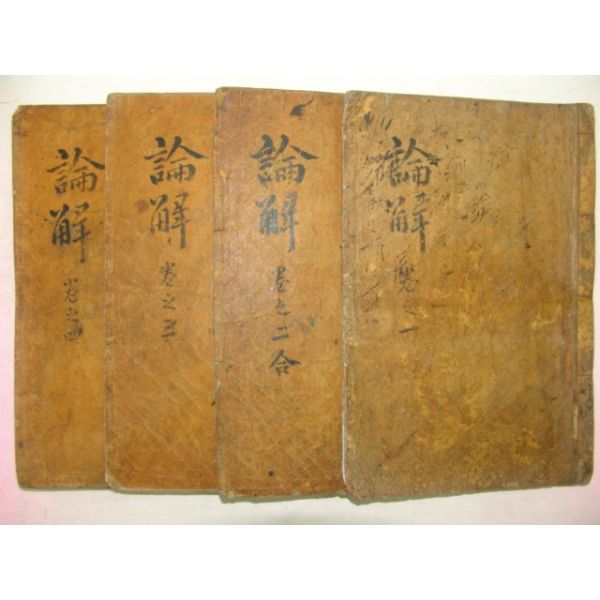 論解
卷之一
論解
卷之二合
論解
卷之三
論解
卷之四